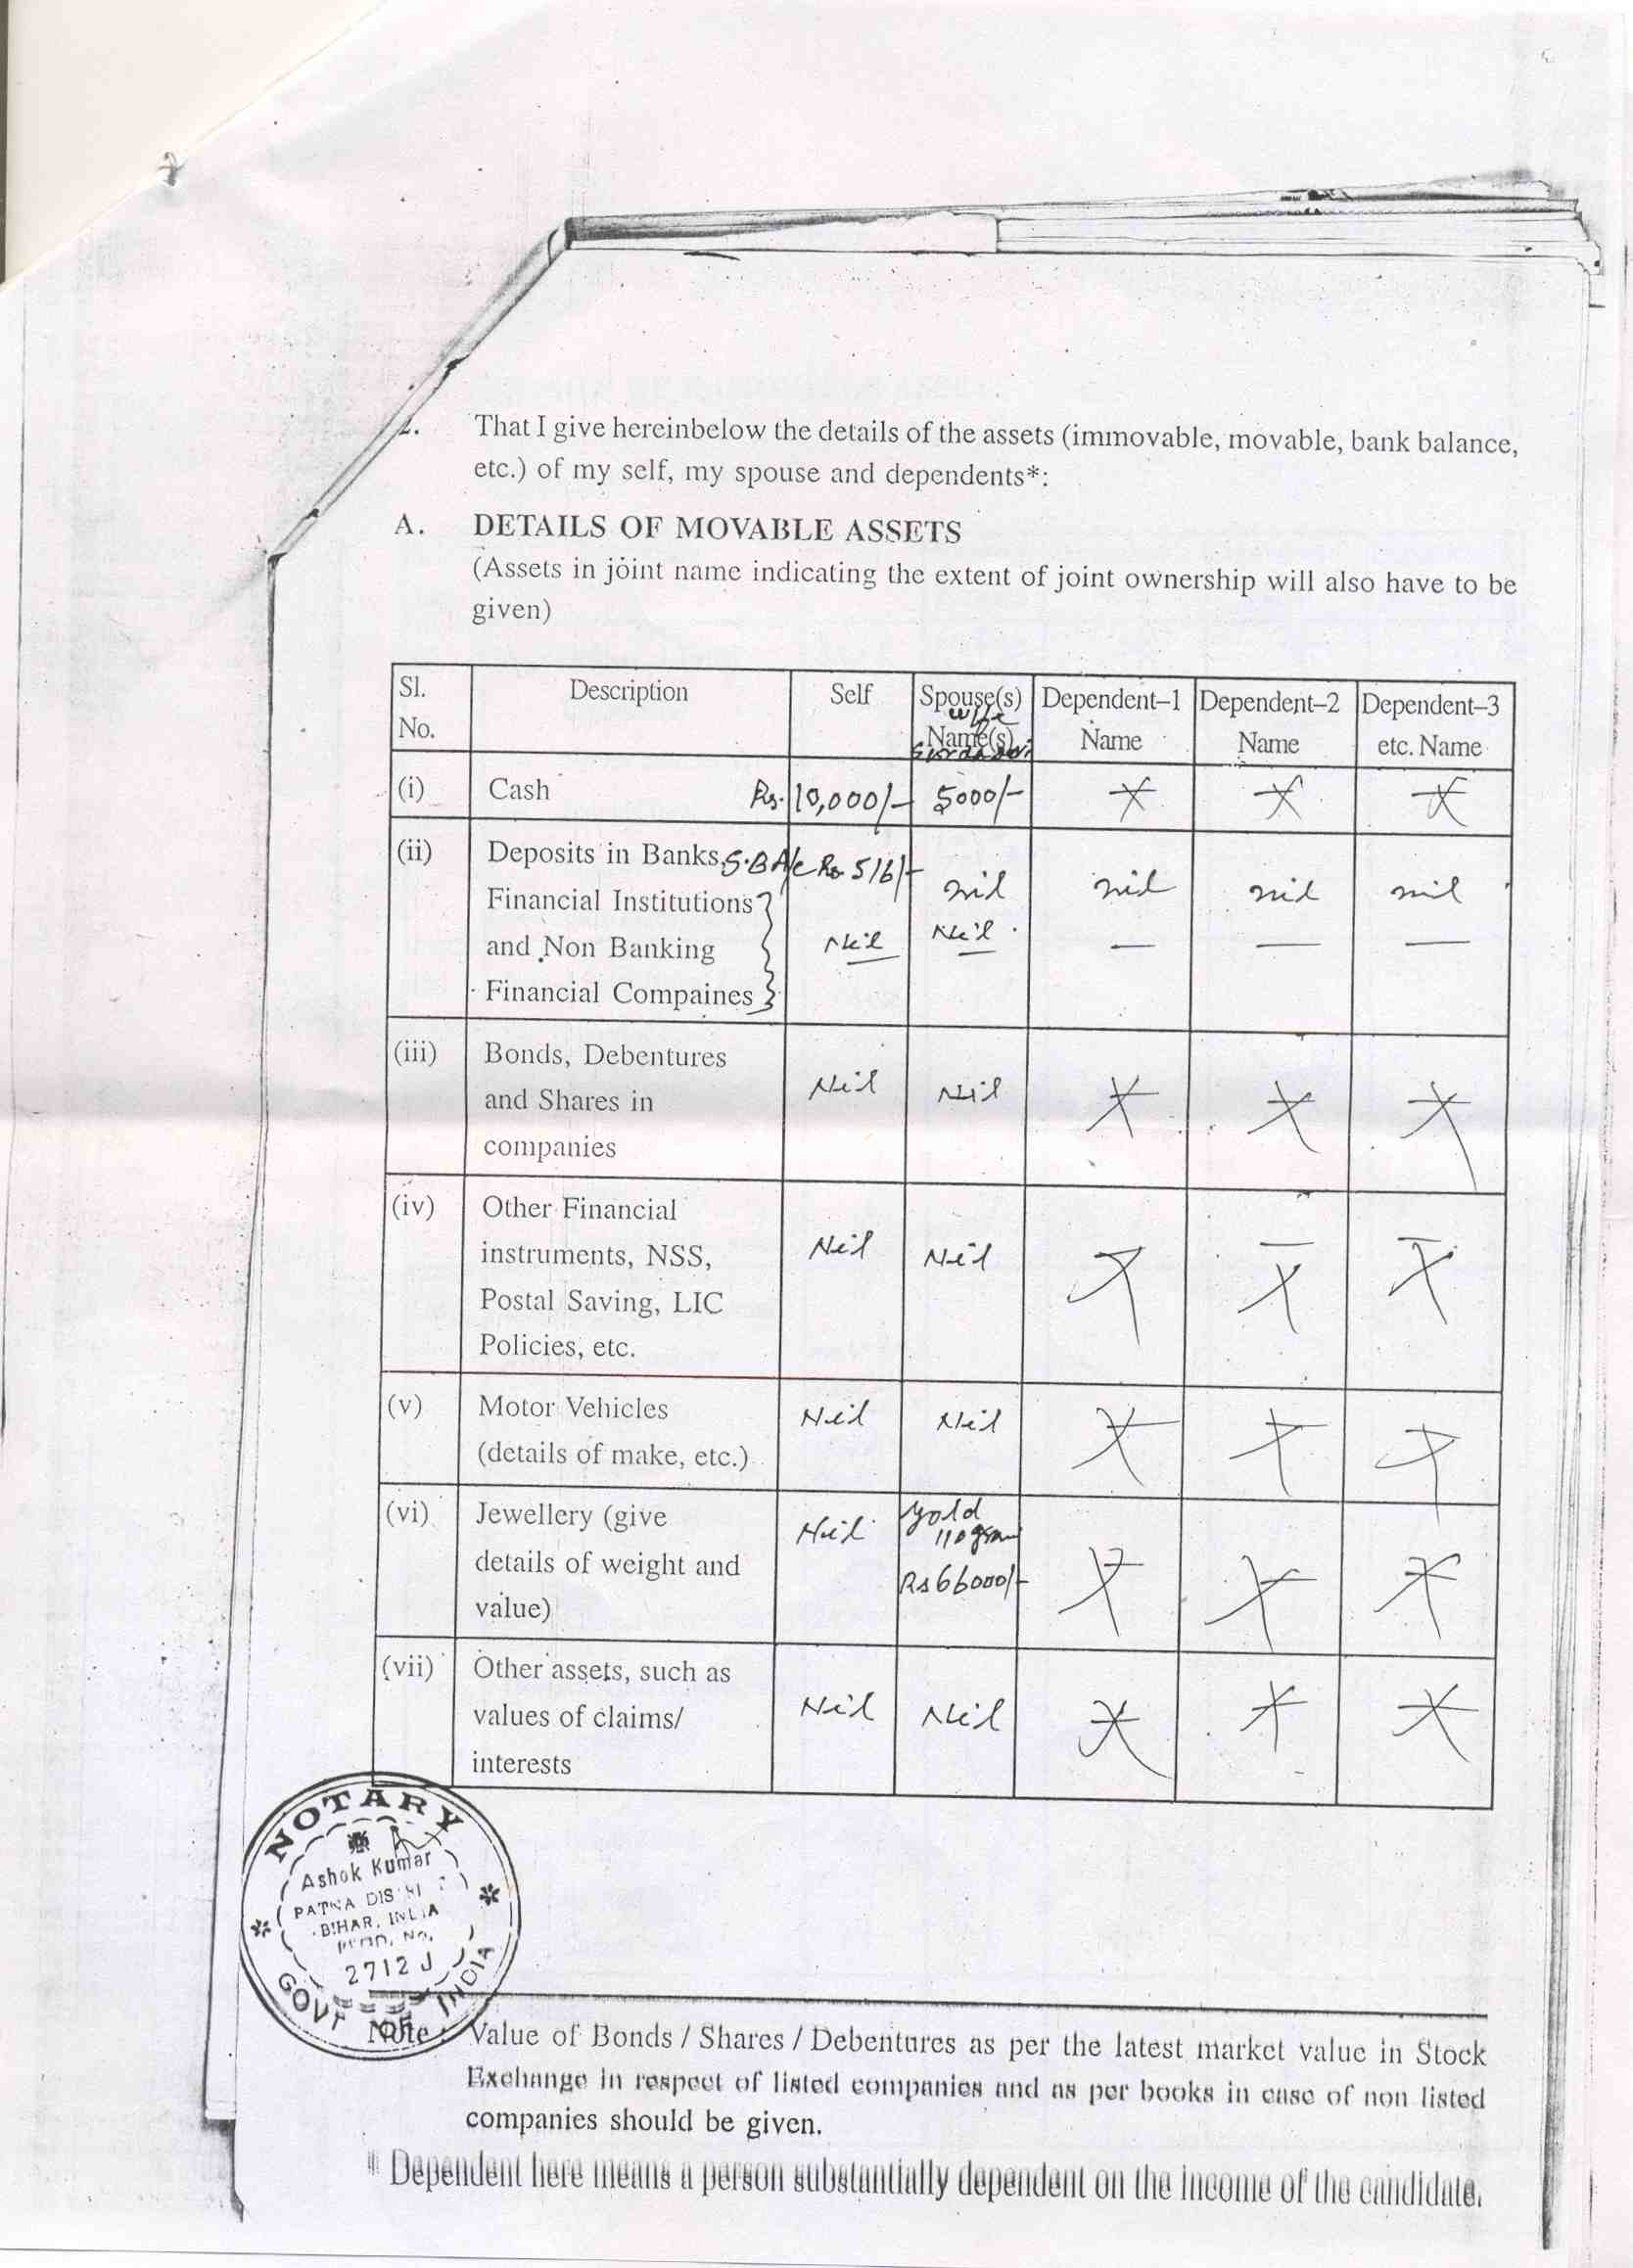 2. That I give hereinbelow the details of the assets (immovable, movable, bank balance,
etc.) of my self, my spouse and dependents*:
A. DETAILS OF MOVABLE ASSETS
(Assets in joint name indicating the extent of joint ownership will also have to be
given)
Sl. No. Description Self Spouse(s) wife Name(s) Dependent–1 Name Dependent–2 Name Dependent–3 etc. Name
(i) Cash Rs. 10,000/- 5000/-
(ii) Deposits in Banks, S.B A/c Rs 516/- nil nil nil nil
Financial Institutions
and Non Banking Nil Nil — — —
Financial Compaines
(iii) Bonds, Debentures Nil Nil
and Shares in
companies
(iv) Other Financial Nil Nil
instruments, NSS,
Postal Saving, LIC
Policies, etc.
(v) Motor Vehicles Nil Nil
(details of make, etc.)
(vi) Jewellery (give Nil gold
110 gram
details of weight and Rs 66000/-
value)
(vii) Other assets, such as
values of claims/ Nil Nil
interests
NOTARY
Ashok Kumar
BIHAR, INDIA
2712 J
GOVT OF INDIA
Note : Value of Bonds / Shares / Debentures as per the latest market value in Stock
Exchange in respect of listed companies and as per books in case of non listed
companies should be given.
* Dependent here means a person substantially dependent on the income of the candidate.